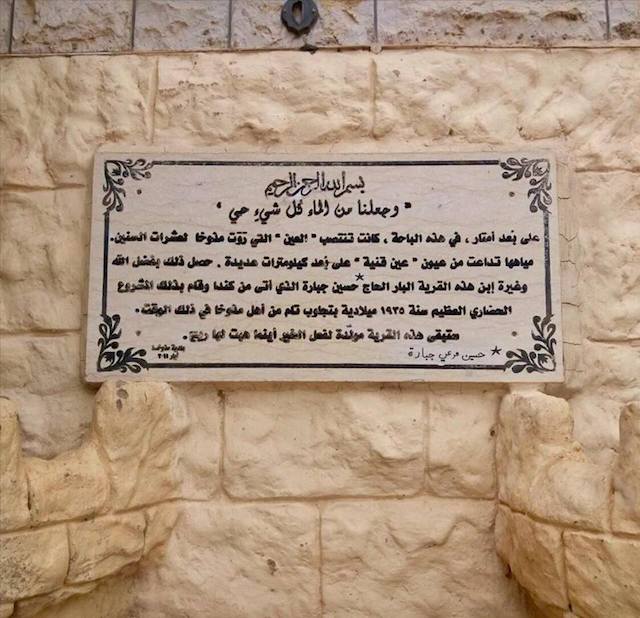 بسم الله الرحمن الرحيم
" وجعلنا من الماء كل شيء حي "
على بُعد أمتار ، في هذه الباحة ، كانت تنتصب "العين" التي رَوَت مدوخا لعشرات السنين.
مياهها تداعت من عيون "عين قنية" على بُعد كيلومترات عديدة . حصل ذلك بفضل الله
وغيرة إبن هذه القرية البار الحاج حسين جبارة* الذي أتى من كندا وقام بذلك المشروع
الحضاري العظيم سنة ١٩٣٥ ميلادية بتجاوب تام من أهل مدوخا في ذلك الوقت.
ستبقى هذه القرية مولّدة لفعل الخير أينما هبت لها ريح.
* حسين مرعي جبارة
بلدية مدوخا
أيار ٢٠١١